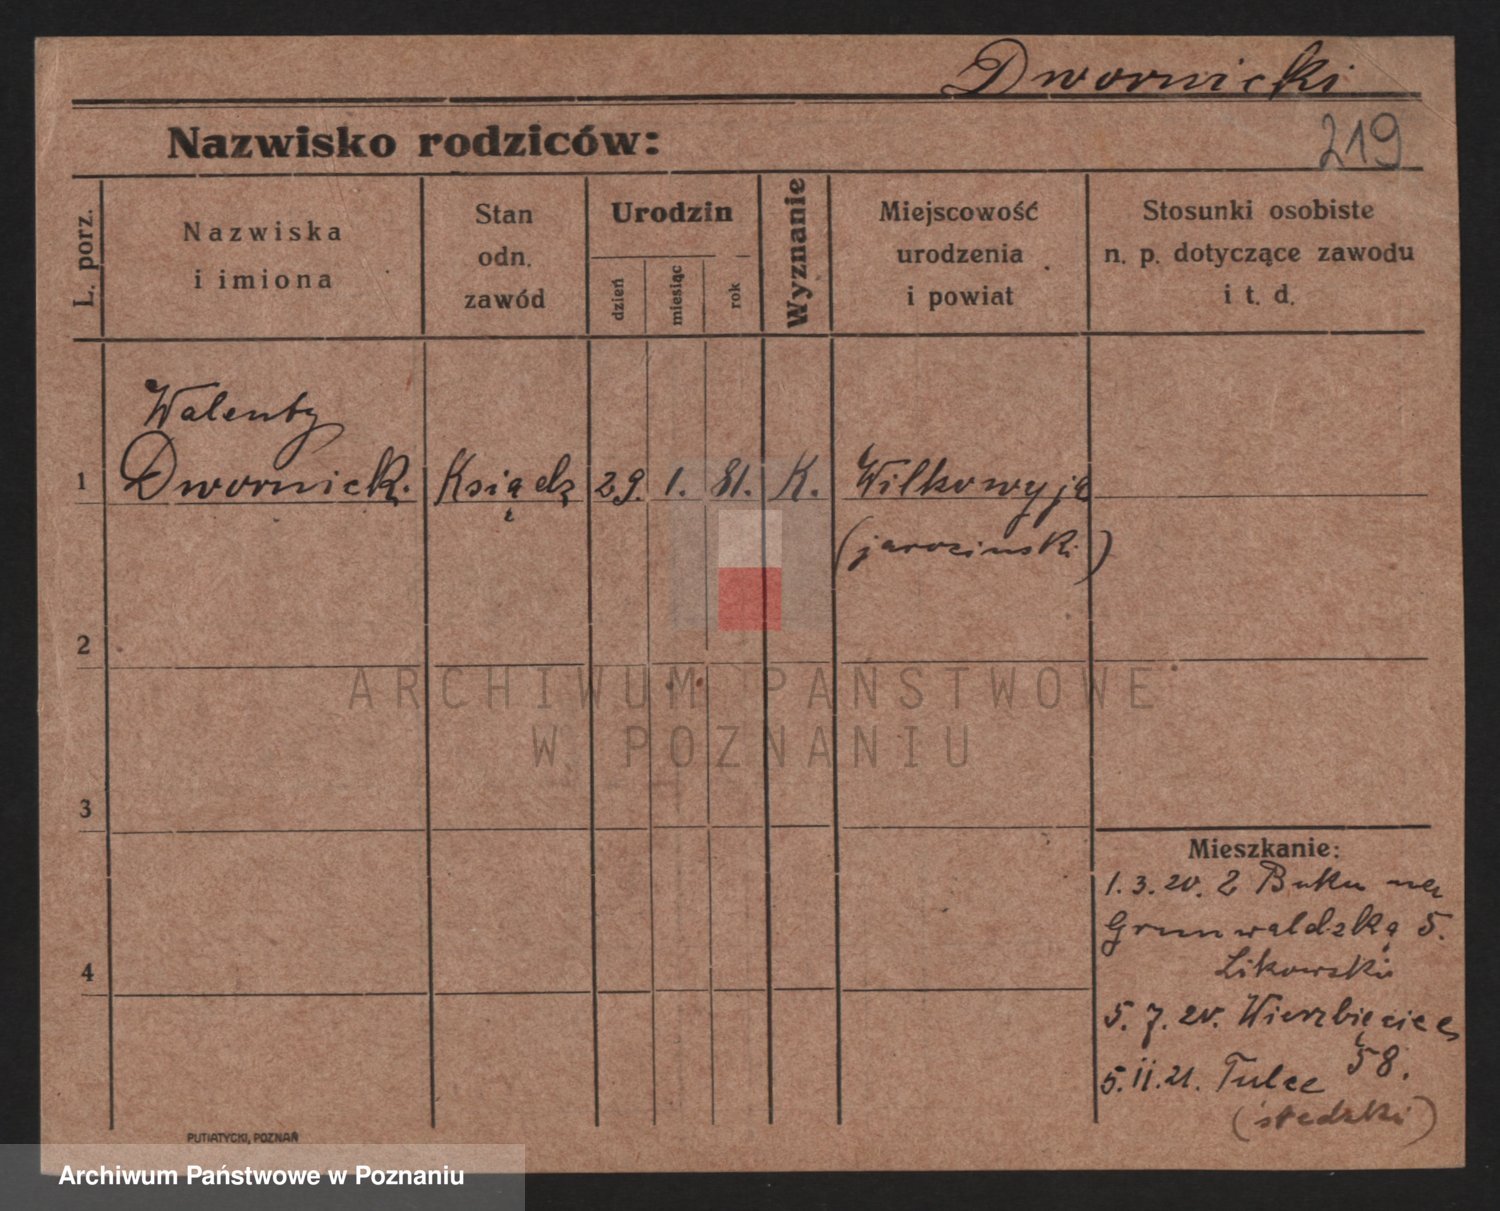 Dwornicki
Nazwisko rodziców:
219
L. porz.
Nazwiska
i imiona
Stan
odn.
zawód
Urodzin
dzień
miesiąc
rok
Wyznanie
Miejscowość
urodzenia
i powiat
Stosunki osobiste
n. p. dotyczące zawodu
i t. d.
Walenty
1 Dwornicki. Ksiądz 29. 1. 81. K. Wilkowyja
(jarocinski)
2
3
4
Mieszkanie:
1.3.20. Z Buku na
Grunwaldzką 5.
Likowski
5.7.20. Wierzbięcice
58.
5.II.21. Tulce
(średzki)
PUTIATYCKI, POZNAŃ
ARCHIWUM PAŃSTWOWE
W POZNANIU
Archiwum Państwowe w Poznaniu